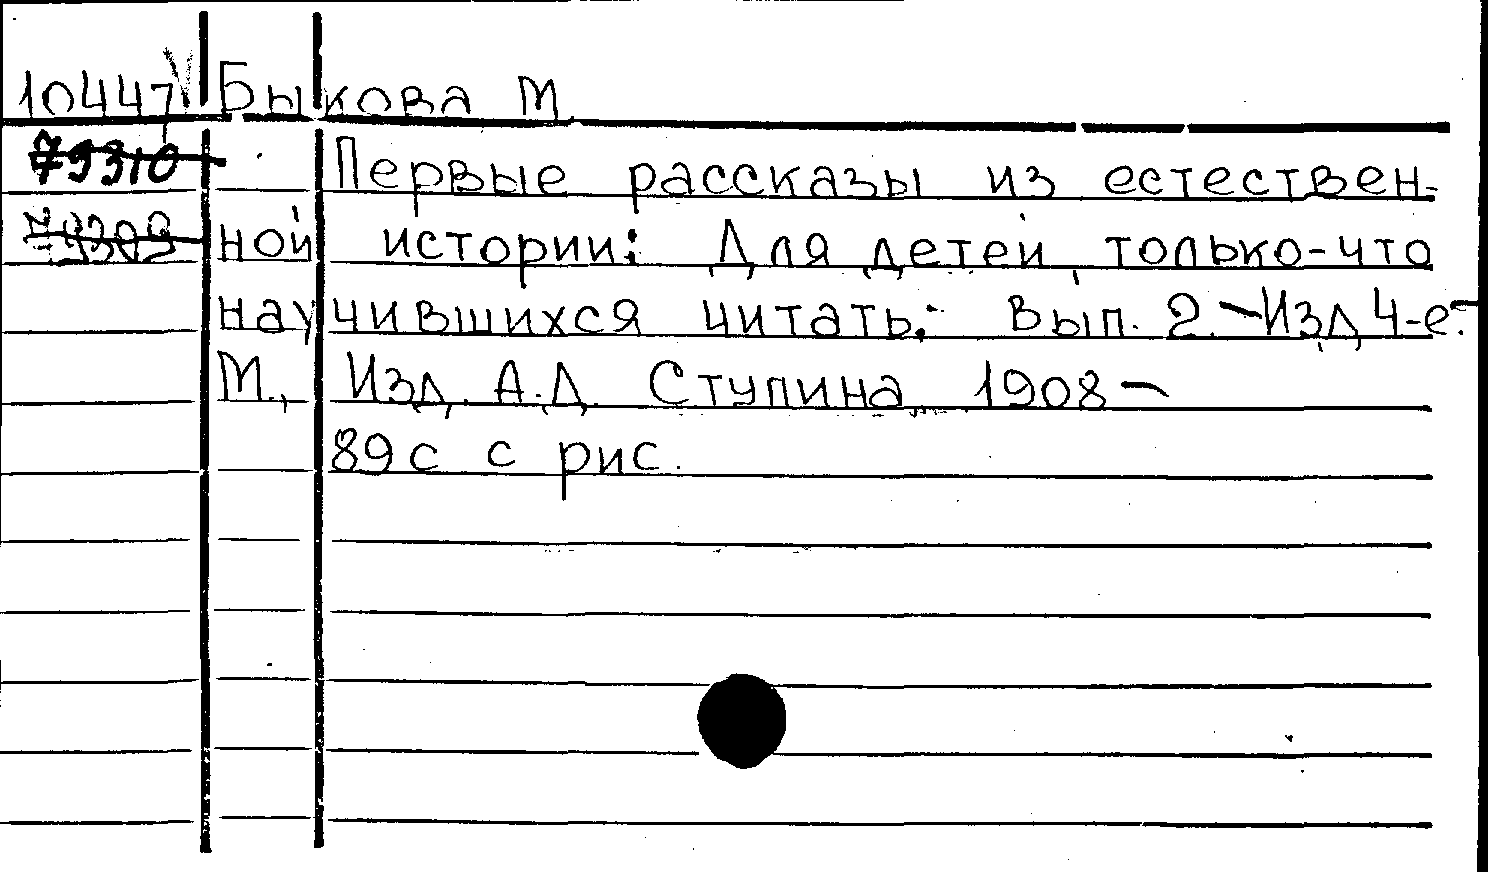 10447 V Быкова М.
79310 Первые рассказы из естествен-
79309 ной истории: Для детей, только-что
научившихся читать.: Вып. 2. – Изд. 4-е. –
М., Изд. А.Д. Ступина, 1908 –
89 с с рис.